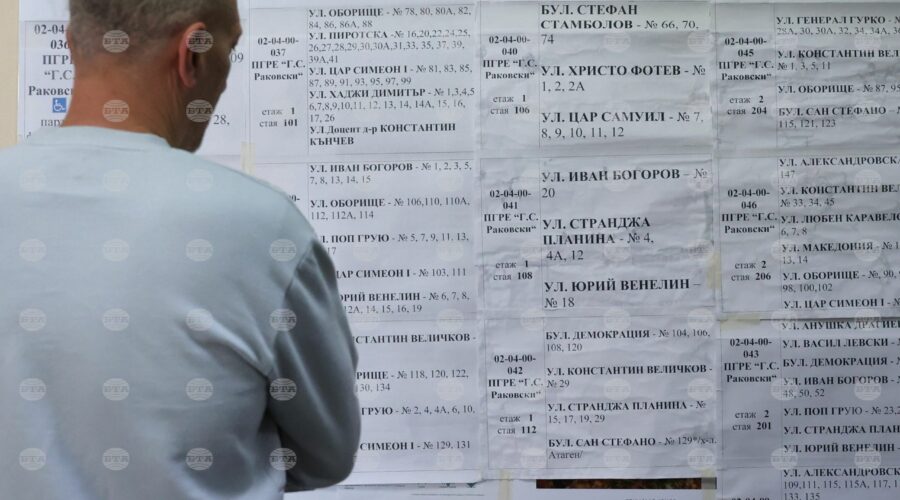 02-04-00-
036
"Г.С.
Раковски"
09
28,
02-04-00-
037
ПГРЕ "Г.С.
Раковски"
етаж 1
стая 101
УЛ. ОБОРИЩЕ - № 78, 80, 80А, 82,
84, 86, 86А, 88
УЛ. ПИРОТСКА - № 16,20,22,24,25,
26,27,28,29,30,30А,31,33, 35, 37, 39,
39А,41
УЛ. ЦАР СИМЕОН I - № 81, 83, 85,
87, 89, 91, 93, 95, 97, 99
УЛ. ХАДЖИ ДИМИТЪР - № 1,3,4,5
6,7,8,9,10,11, 12, 13, 14, 14А, 15, 16,
17, 26
УЛ.Доцент д-р КОНСТАНТИН
КЪНЧЕВ
УЛ. ИВАН БОГОРОВ - № 1, 2, 3, 5,
7, 8, 13, 14, 15
УЛ. ОБОРИЩЕ - № 106,110, 110А,
112, 112А, 114
УЛ. ПОП ГРУЮ - № 5, 7, 9, 11, 13,
17
ЦАР СИМЕОН I - № 103, 111
ЮРИЙ ВЕНЕЛИН - № 6, 7, 8,
12А, 14, 15, 16, 19
КОНСТАНТИН ВЕЛИЧКОВ -
ОБОРИЩЕ - № 118, 120, 122,
130, 134
ГРУЮ - № 2, 4, 4А, 6, 10,
СИМЕОН I - № 129, 131
02-04-00-
040
ПГРЕ "Г.С.
Раковски"
етаж 1
стая 106
БУЛ. СТЕФАН
СТАМБОЛОВ - № 66, 70,
74
УЛ. ХРИСТО ФОТЕВ - №
1, 2, 2А
УЛ. ЦАР САМУИЛ - № 7,
8, 9, 10, 11, 12
02-04-00-
041
ПГРЕ "Г.С.
Раковски"
етаж 1
стая 108
УЛ. ИВАН БОГОРОВ – №
20
УЛ. СТРАНДЖА
ПЛАНИНА - № 4,
4А, 12
УЛ. ЮРИЙ ВЕНЕЛИН –
№ 18
02-04-00-
042
ПГРЕ "Г.С.
Раковски"
етаж 1
стая 112
БУЛ. ДЕМОКРАЦИЯ - № 104, 106,
108, 120
УЛ. КОНСТАНТИН ВЕЛИЧКОВ -
№ 29
УЛ. СТРАНДЖА ПЛАНИНА - №
15, 17, 19, 29
БУЛ. САН СТЕФАНО - № 129*/х-л.
Атаген/
02-04-00-
045
ПГРЕ "Г.С.
Раковски"
етаж 2
стая 204
УЛ. ГЕНЕРАЛ ГУРКО - №
28А, 30, 30А, 32, 34, 34А, 36
УЛ. КОНСТАНТИН ВЕЛ
№ 1, 3, 5, 11
УЛ. ОБОРИЩЕ - № 87, 95
БУЛ. САН СТЕФАНО - №
115, 121, 123
02-04-00-
046
ПГРЕ "Г.С.
Раковски"
етаж 2
стая 206
УЛ. АЛЕКСАНДРОВСКА
147
УЛ. КОНСТАНТИН ВЕЛ
№ 33, 34, 45
УЛ. ЛЮБЕН КАРАВЕЛО
6, 7, 8
УЛ. МАКЕДОНИЯ - № 1
13, 14
УЛ. ОБОРИЩЕ - №, 90,
98, 100,102
УЛ. ЦАР СИМЕОН I - №
02-04-00-
043
ПГРЕ "Г.С.
Раковски"
етаж 2
стая 201
УЛ. ВАСИЛ ЛЕВСКИ - №
БУЛ. ДЕМОКРАЦИЯ -
УЛ. ИВАН БОГОРОВ - №
48, 50, 52
УЛ. ПОП ГРУЮ - № 23,2
УЛ. СТРАНДЖА ПЛАН
УЛ. ЮРИЙ ВЕНЕЛИН -
УЛ. АЛЕКСАНДРОВСКА
109, 111, 115, 115А, 117, 1
133, 135
02-04-00-